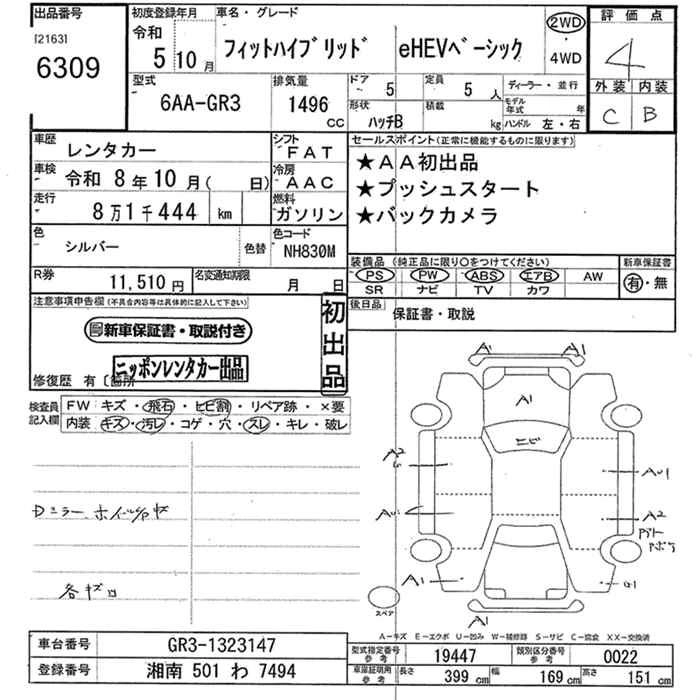 出品番号
[2163]
6309
初度登録年月
令和
5 10 月
車名・グレード
フィットハイブリッド eHEVベーシック
2WD
・
4WD
評価点
4
外装 内装
C B
型式
6AA-GR3
排気量
1496
CC
ドア 5
定員 5 人
形状 ハッチB
積載 kg
ディーラー・並行
モデル年式 年
ハンドル 左・右
車歴 レンタカー
シフト FAT
車検 令和 8年10月( 日)
冷房 AAC
走行 8万1千444 km
燃料 ガソリン
色 シルバー 色替
色コード NH830M
R券 11,510円
名変通知期限 月 日
セールスポイント(正常に機能するものに限ります)
★AA初出品
★プッシュスタート
★バックカメラ
装備品 (純正品に限り〇をつけてください)
PS PW ABS エアB AW
SR ナビ TV カワ
新車保証書
有・無
後日品 保証書・取説
注意事項申告欄(不具合内容等は具体的に記入して下さい)
新車保証書・取説付き
ニッポンレンタカー出品
初出品
修復歴 有〔箇所
検査員記入欄
FW キズ・飛石・ヒビ割・リペア跡・×要
内装 キズ・汚レ・コゲ・穴・スレ・キレ・破レ
Dミラー ホイールcap キズ
各キズロ
A1 A1
A1
ヒビ
A2
AU1
A2
A1
A1
スペア
A-キズ E-エクボ U-凹み W-補修跡 S-サビ C-腐食 XX-交換済
車台番号 GR3-1323147
登録番号 湘南 501 わ 7494
型式指定番号 参考 19447
類別区分番号 参考 0022
車庫証明用 参考 長さ 399 cm 幅 169 cm 高さ 151 cm